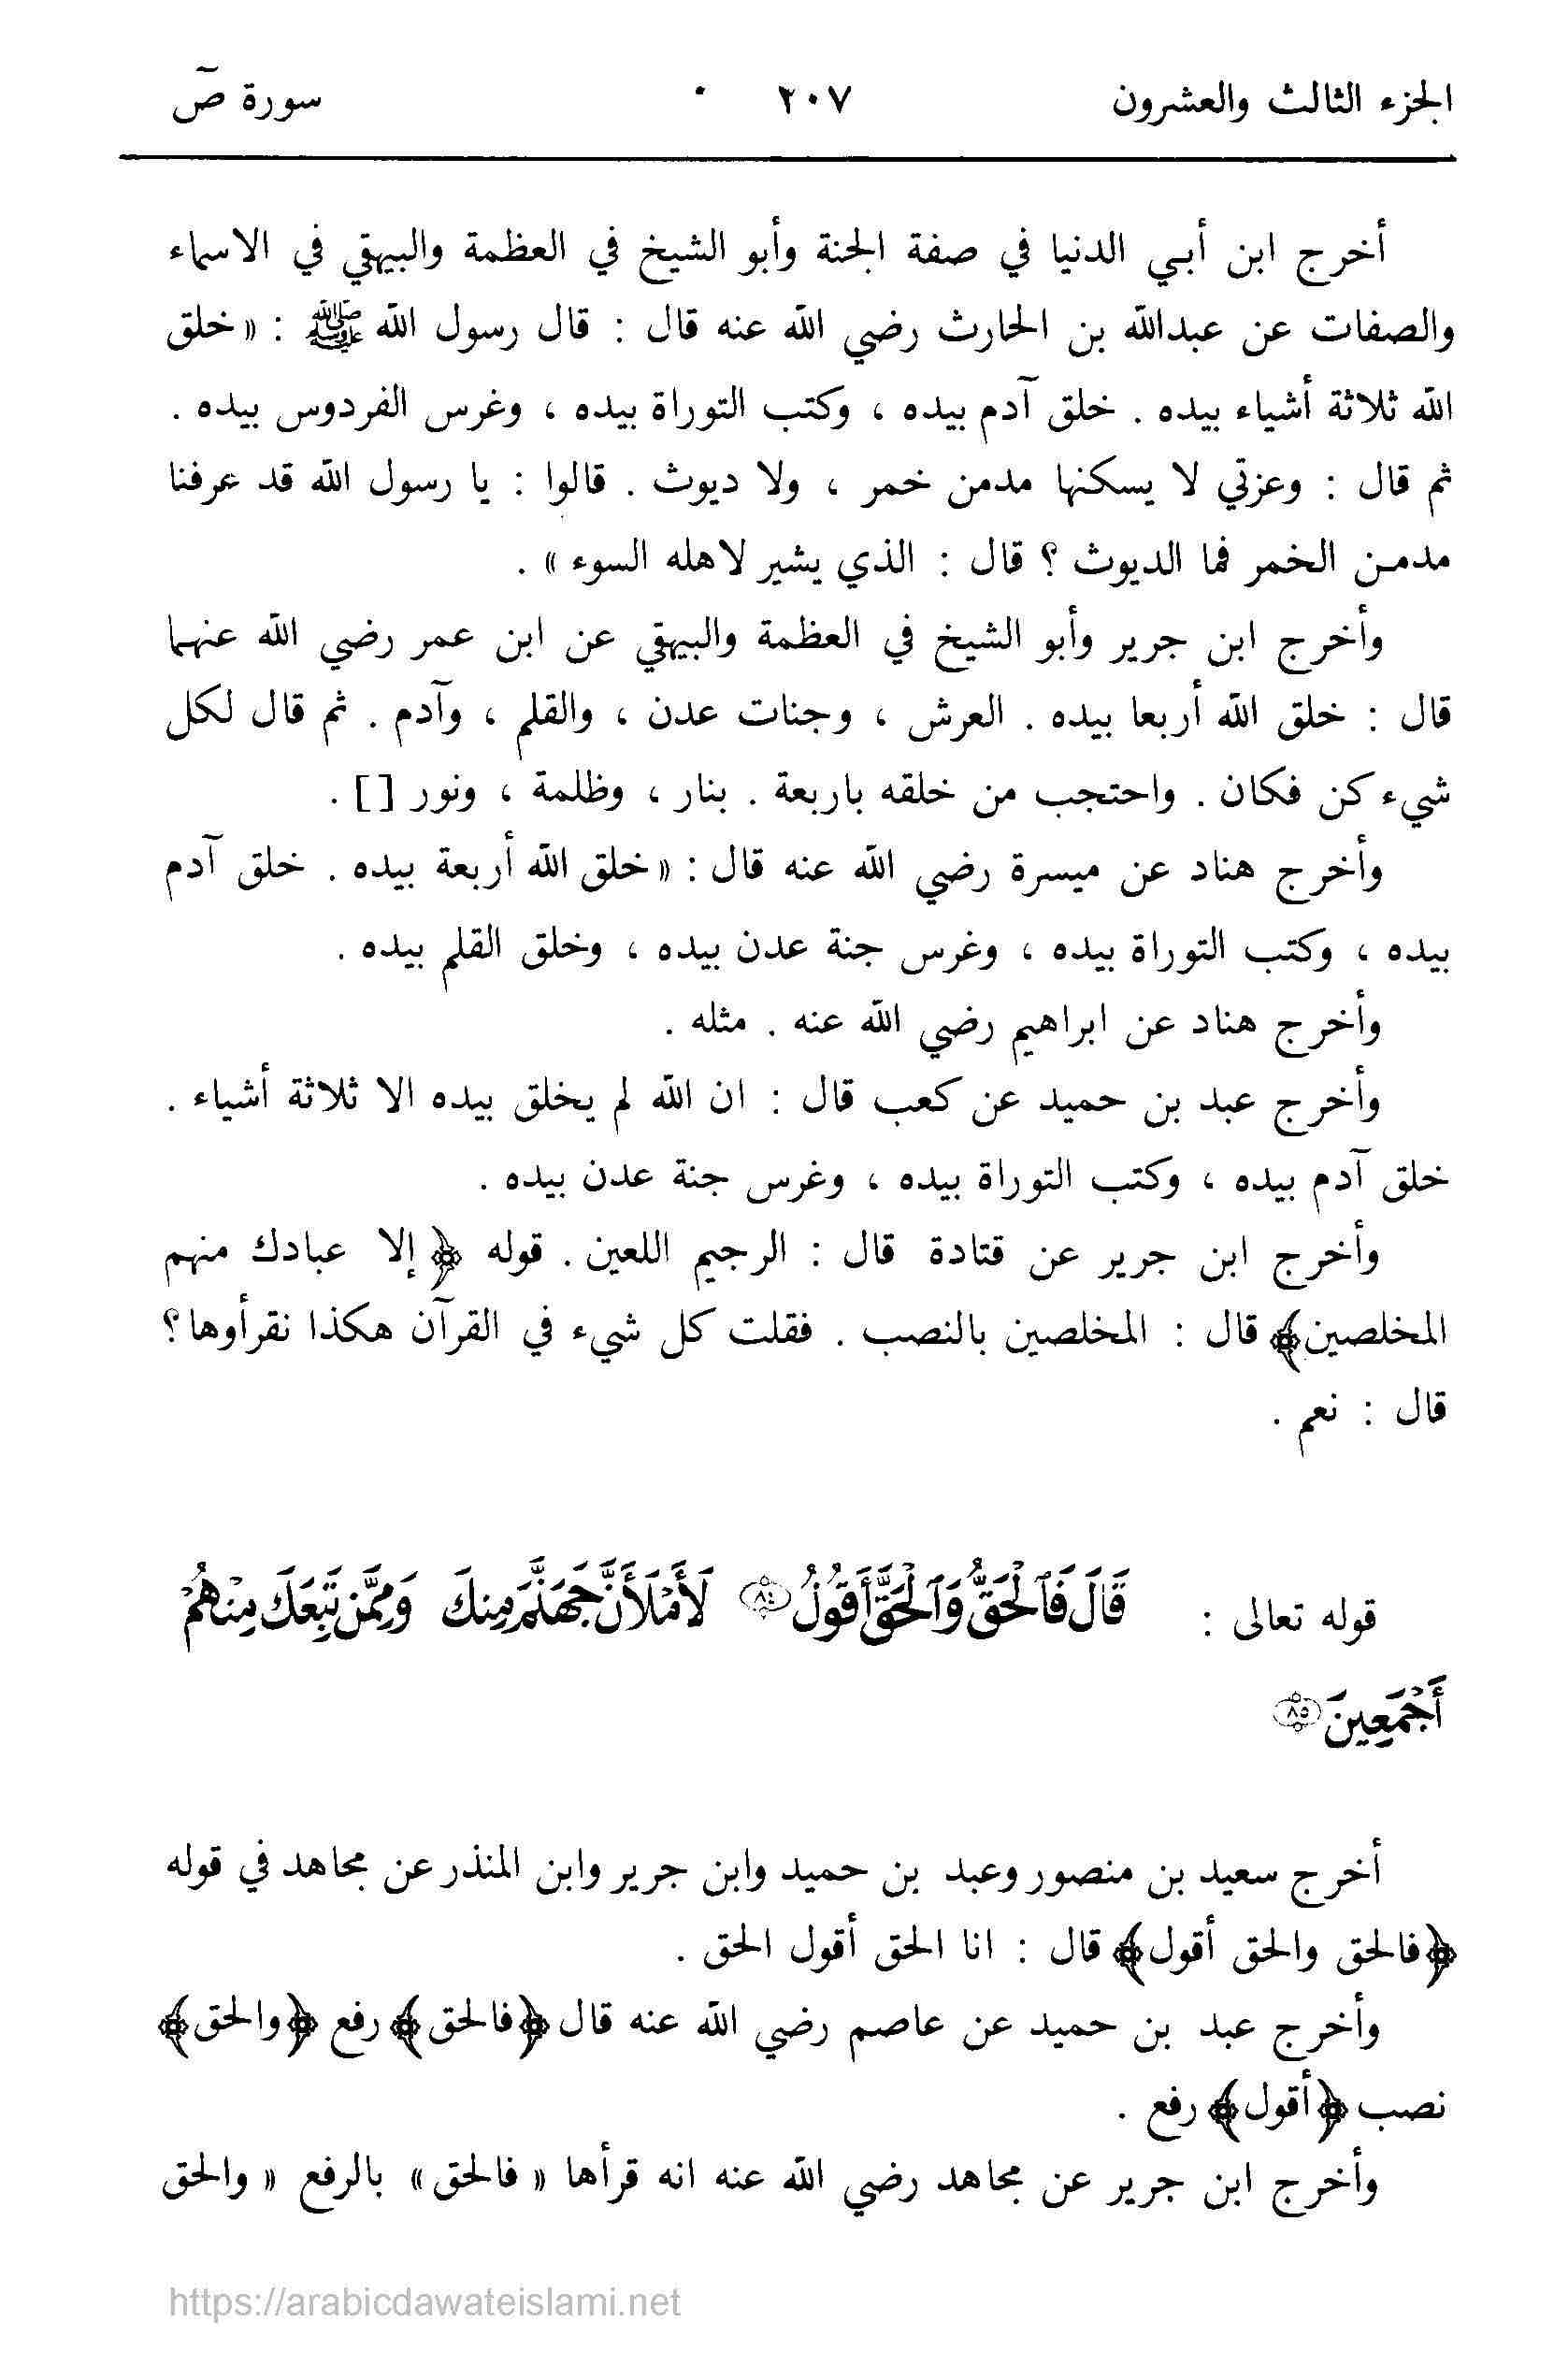 الجزء الثالث والعشرون ٢٠٧ سورة صٓ
أخرج ابن أبـي الدنيا في صفة الجنة وأبو الشيخ في العظمة والبيهقي في الاسماء
والصفات عن عبدالله بن الحارث رضي الله عنه قال : قال رسول الله ﷺ : « خلق
الله ثلاثة أشياء بيده . خلق آدم بيده ، وكتب التوراة بيده ، وغرس الفردوس بيده .
ثم قال : وعزتي لا يسكنها مدمن خمر ، ولا ديوث . قالوا : يا رسول الله قد عرفنا
مدمـن الخمر فما الديوث ؟ قال : الذي يشير لاهله السوء » .
وأخرج ابن جرير وأبو الشيخ في العظمة والبيهقي عن ابن عمر رضي الله عنهما
قال : خلق الله أربعا بيده . العرش ، وجنات عدن ، والقلم ، وآدم . ثم قال لكل
شيء كن فكان . واحتجب من خلقه باربعة . بنار ، وظلمة ، ونور [ ] .
وأخرج هناد عن ميسرة رضي الله عنه قال : « خلق الله أربعة بيده . خلق آدم
بيده ، وكتب التوراة بيده ، وغرس جنة عدن بيده ، وخلق القلم بيده .
وأخرج هناد عن ابراهيم رضي الله عنه . مثله .
وأخرج عبد بن حميد عن كعب قال : ان الله لم يخلق بيده الا ثلاثة أشياء .
خلق آدم بيده ، وكتب التوراة بيده ، وغرس جنة عدن بيده .
وأخرج ابن جرير عن قتادة قال : الرجيم اللعين . قوله ﴿ إلا عبادك منهم
المخلصين﴾ قال : المخلصين بالنصب . فقلت كل شيء في القرآن هكذا نقرأوها ؟
قال : نعم .
قوله تعالى : قَالَ فَٱلْحَقُّ وَٱلْحَقَّ أَقُولُ ٨٤ لَأَمْلَأَنَّ جَهَنَّمَ مِنكَ وَمِمَّن تَبِعَكَ مِنْهُمْ
أَجْمَعِينَ ٨٥
أخرج سعيد بن منصور وعبد بن حميد وابن جرير وابن المنذر عن مجاهد في قوله
﴿فالحق والحق أقول﴾ قال : انا الحق أقول الحق .
وأخرج عبد بن حميد عن عاصم رضي الله عنه قال ﴿فالحق﴾ رفع ﴿والحق﴾
نصب ﴿أقول﴾ رفع .
وأخرج ابن جرير عن مجاهد رضي الله عنه انه قرأها « فالحق » بالرفع « والحق
https://arabicdawateislami.net